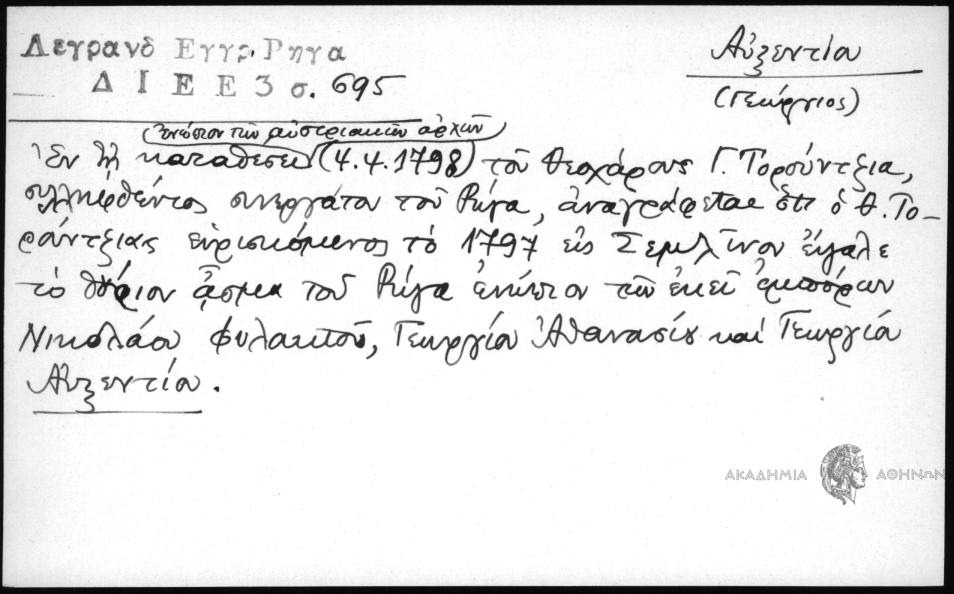 Λεγρανδ Εγγρ. Ρηγα
Δ Ι Ε Ε 3 σ. 695
Αὐξεντίου
(Γεώργιος)
(ἐνώπιον τῶν αὐστριακῶν ἀρχῶν)
Ἐν τῇ καταθέσει (4.4.1798) τοῦ Θεοχάρους Γ. Τορούντζια,
συλληφθέντος συνεργάτου τοῦ Ρήγα, ἀναγράφεται ὅτι ὁ Θ. Το-
ρούντζιας εὑρισκόμενος τὸ 1797 εἰς Σεμλῖνον ἔψαλε
τὸ θούριον ᾆσμα τοῦ Ρήγα ἐνώπιον τῶν ἐκεῖ ἐμπόρων
Νικολάου Φυλακτοῦ, Γεωργίου Ἀθανασίου καὶ Γεωργίου
Αὐξεντίου.
ΑΚΑΔΗΜΙΑ ΑΘΗΝΩΝ